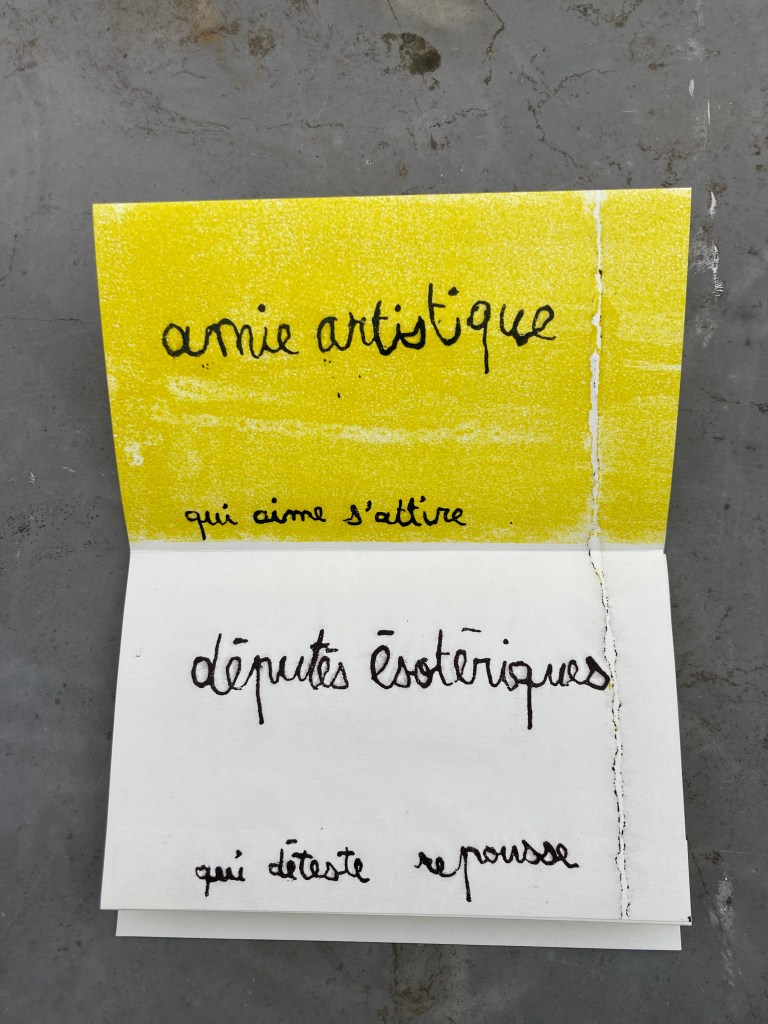 amie artistique
qui aime s'attire
députés ésotériques
qui déteste repousse